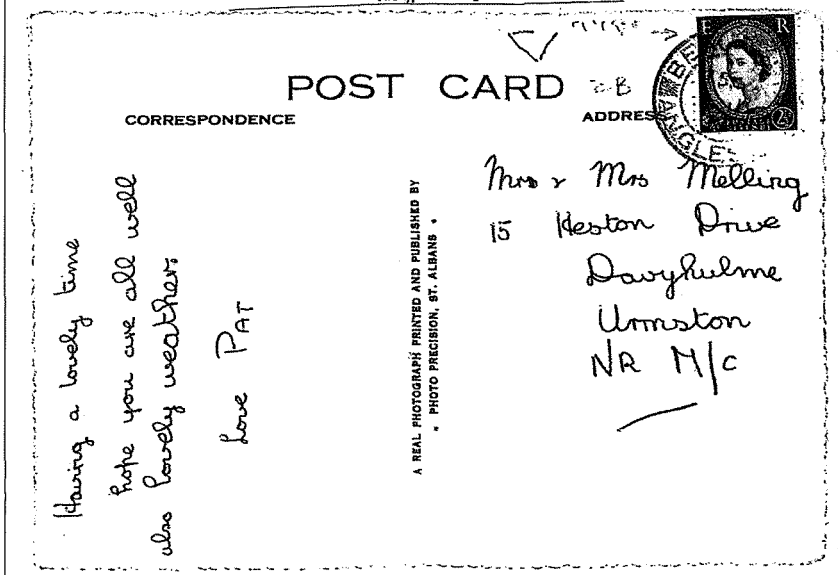 POST CARD
CORRESPONDENCE
ADDRESS
E R
Having a lovely time
hope you are all well
also lovely weather.
Love PAT
A REAL PHOTOGRAPH PRINTED AND PUBLISHED BY
* PHOTO PRECISION, ST. ALBANS *
Mrs & Mrs Melling
15 Heston Drive
Davyhulme
Urmston
NR M/C